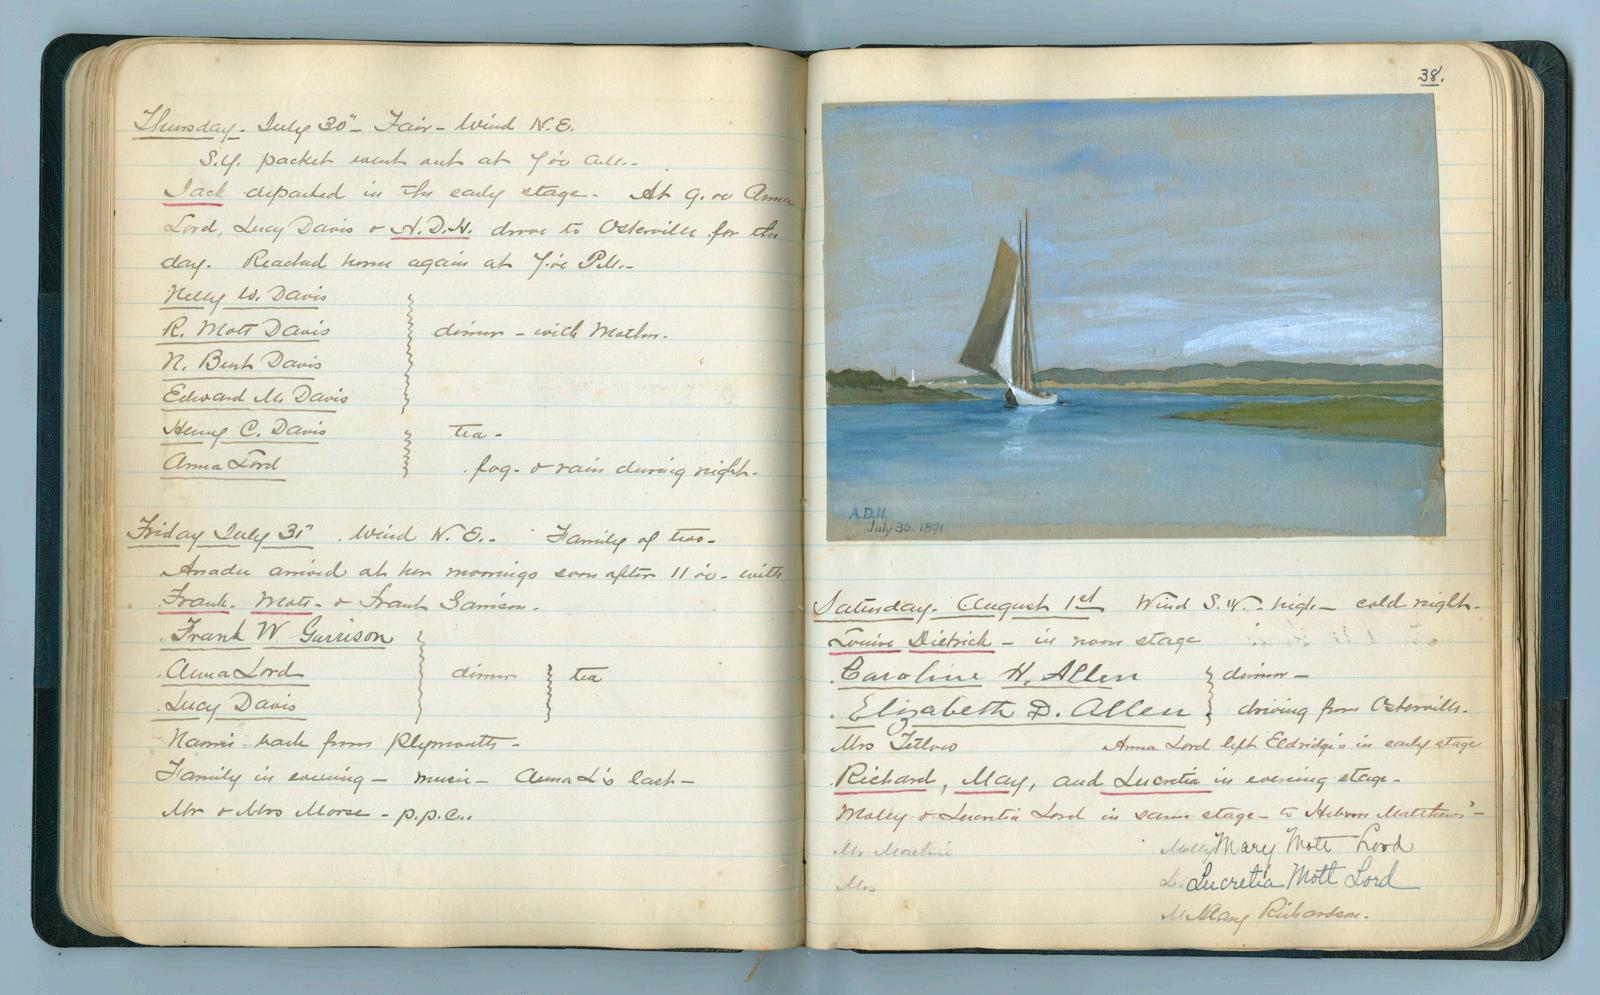 Thursday. July 30" – Fair – Wind N.E.
S.Y. packet went out at 7 A.M.–
Jack departed in the early stage – At 9. Anna
Lord, Lucy Davis & A.D.H. drove to Osterville for the
day. Reached home again at P.M.–
Nelly W. Davis
R. Mott Davis
dinner – with Mother.
N. Bent Davis
Edward M. Davis
Henry C. Davis
tea –
Anna Lord
fog – & rain during night –
Friday July 31" . Wind N.E. – Family of two –
arrived at her moorings soon after 11 – with
Frank – Mott – & Frank Garrison –
Frank W. Garrison
Anna Lord
dinner
tea
Lucy Davis
back from Plymouth –
Family in evening – music – Anna L's last –
Mr & Mrs Morse – p.p.c..
38.
A.D.H.
July 30. 1891
Saturday. August 1st Wind S.W. – high – cold night –
Louise Dietrick – in noon stage
Caroline H. Allen
dinner –
Elizabeth D. Allen
driving from Osterville.
Mrs Tetlow
Anna Lord left Eldridge's in early stage
Richard, May, and Lucretia in evening stage –
Molly & Lucretia Lord in same stage – to Matthews' –
Mr
Molly Mary Mott Lord
Mrs
L. Lucretia Mott Lord
M Mary Richardson.